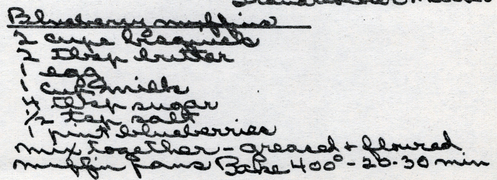 Blueberry muffins
2 cups bisquick
2 tbsp butter
1 egg
1 cup milk
4 tbsp sugar
1/2 tsp salt
1 pint blueberries
mix together - greased + floured
muffin pans Bake 400° - 20-30 min